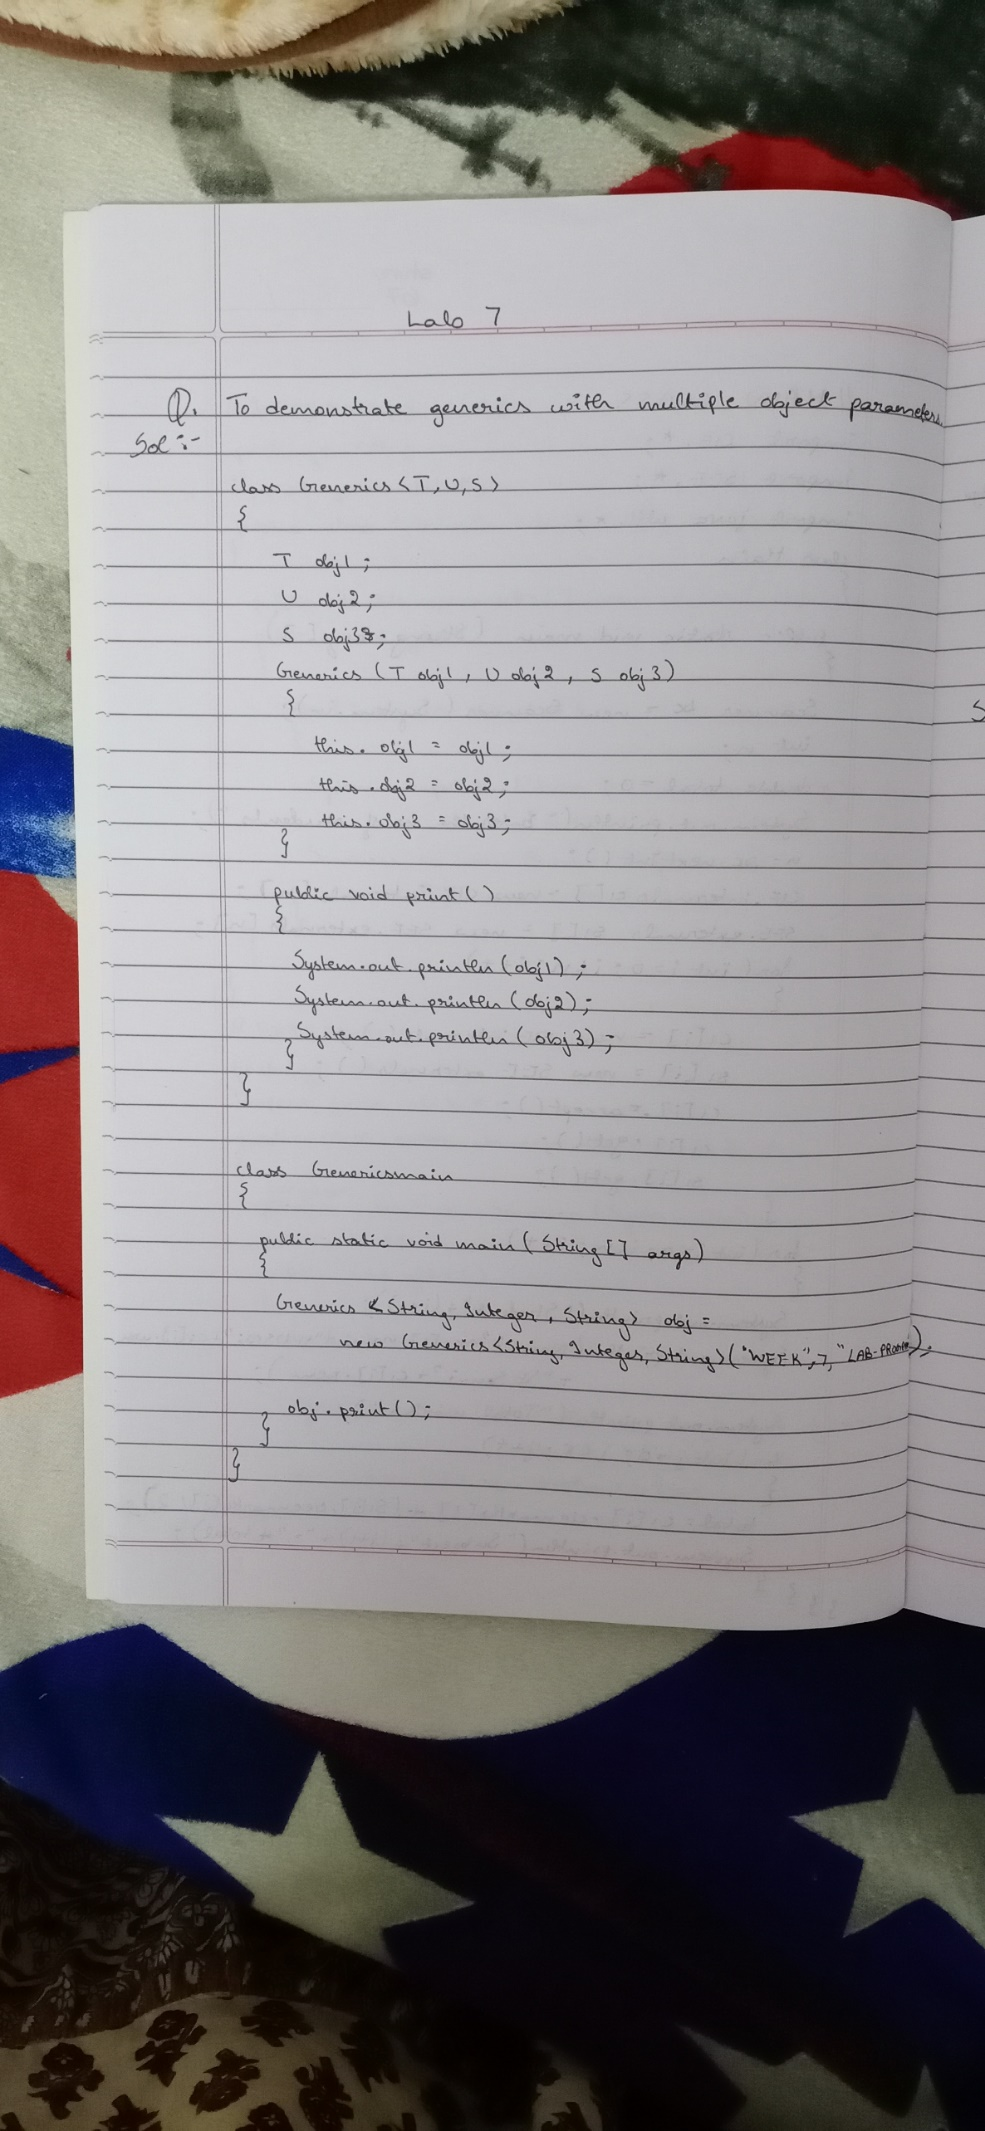 Lab 7
Q. To demonstrate generics with multiple object parameters.
Sol :-
class Generics <T,U,S>
{
T obj1;
U obj2;
S obj3;
Generics (T obj1, U obj2, S obj3)
{
this.obj1 = obj1;
this.obj2 = obj2;
this.obj3 = obj3;
}
public void print()
{
System.out.println(obj1);
System.out.println(obj2);
System.out.println(obj3);
}
}
class Genericsmain
{
public static void main(String[] args)
{
Generics <String, Integer, String> obj =
new Generics<String, Integer, String>("WEEK",7,
obj.print();
}
}